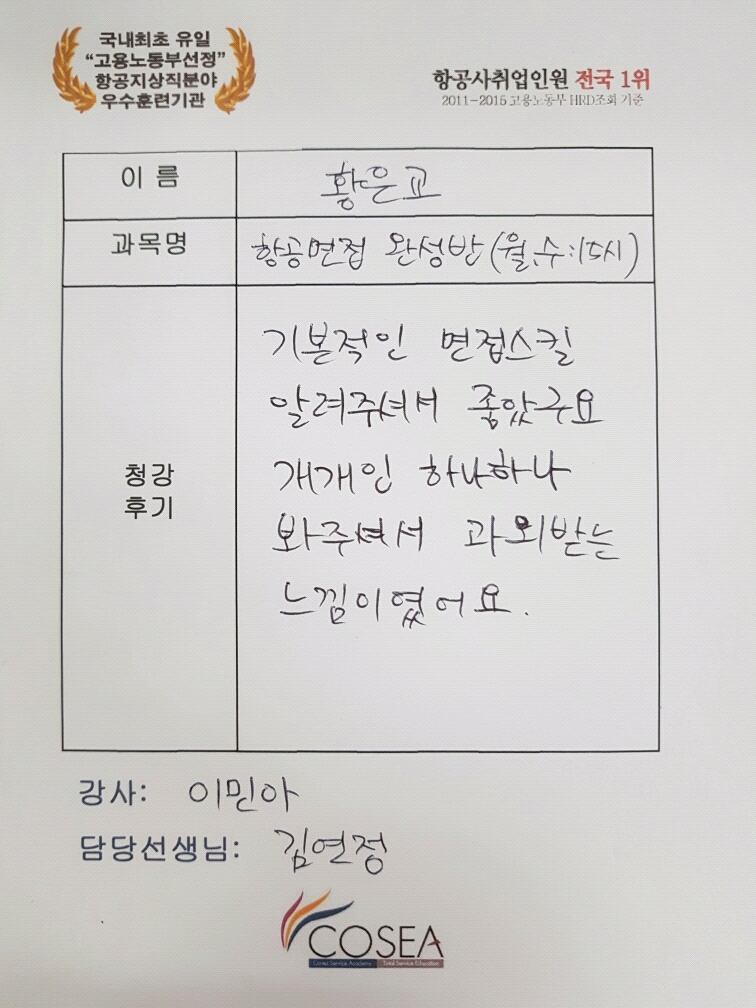 국내최초 유일
"고용노동부선정"
항공지상직분야
우수훈련기관
항공사취업인원 전국 1위
2011-2015 고용노동부 HRD조회 기준
이 름
황은교
과목명
항공면접 완성반 (월,수:15시)
청강
후기
기본적인 면접스킬
알려주셔서 좋았구요
개개인 하나하나
봐주셔서 과외받는
느낌이였어요.
강사: 이민아
담당선생님: 김연정
COSEA
Total Service Education